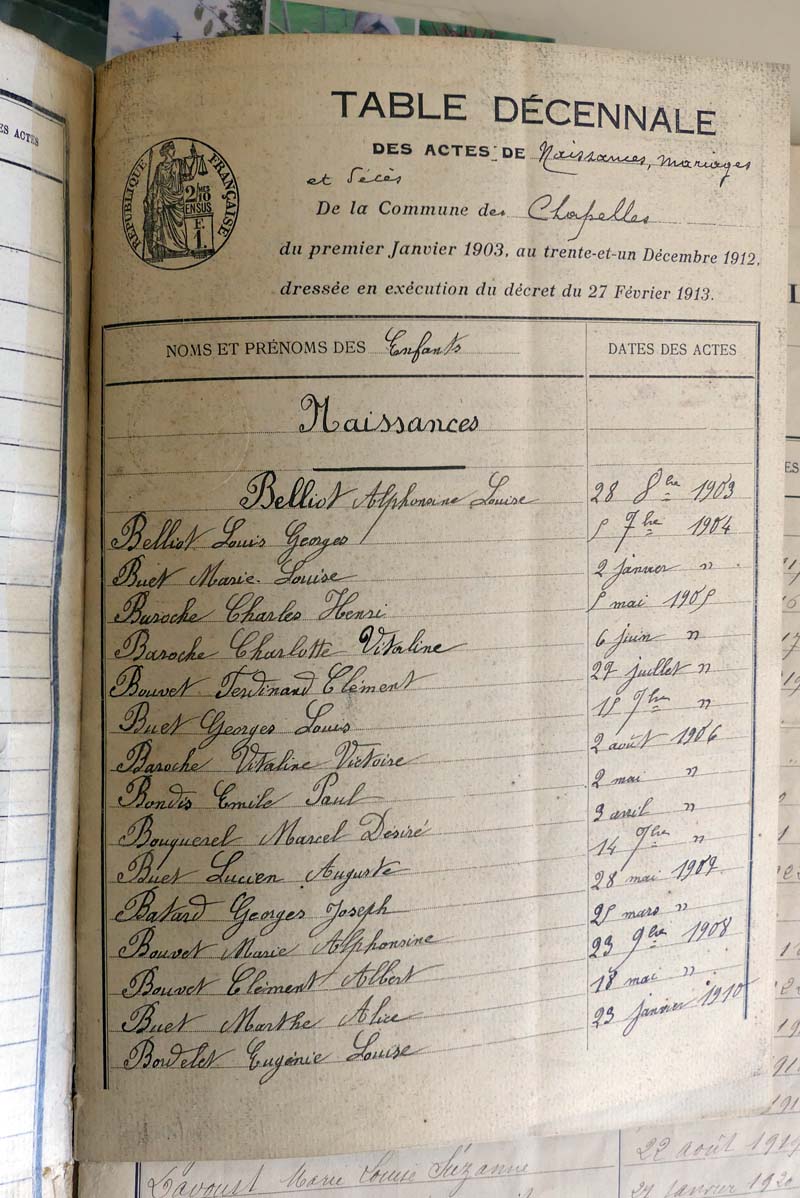 TABLE DÉCENNALE
DES ACTES DE Naissances, mariages
et Décès
RÉPUBLIQUE FRANÇAISE
De la Commune des Chapelles
du premier Janvier 1903, au trente-et-un Décembre 1912,
dressée en exécution du décret du 27 Février 1913.
NOMS ET PRÉNOMS DES Enfants DATES DES ACTES
Naissances
Belliot Alphonsine Louise 28 8bre 1903
Belliot Louis Georges 5 7bre 1904
Buet Marie-Louise 2 janvier "
Baroche Charles Henri 5 mai 1905
Baroche Charlotte Vitaline 6 juin "
Bouvet Ferdinand Clément 27 juillet "
Buet Georges Louis 15 7bre "
Baroche Vitaline Victoire 2 août 1906
Bondis Emile Paul 2 mai "
Bouquerel Marcel Désiré 3 avril "
Buet Lucien Auguste 14 9bre "
Batard Georges Joseph 28 mai 1907
Bouvet Marie Alphonsine 25 mars "
Bouvet Clément Albert 23 9bre 1908
Buet Marthe Alice 18 mai "
Bordelet Eugénie Louise 23 janvier 1910
Lavoust Marie Louise Suzanne 22 août 1919
janvier 1920